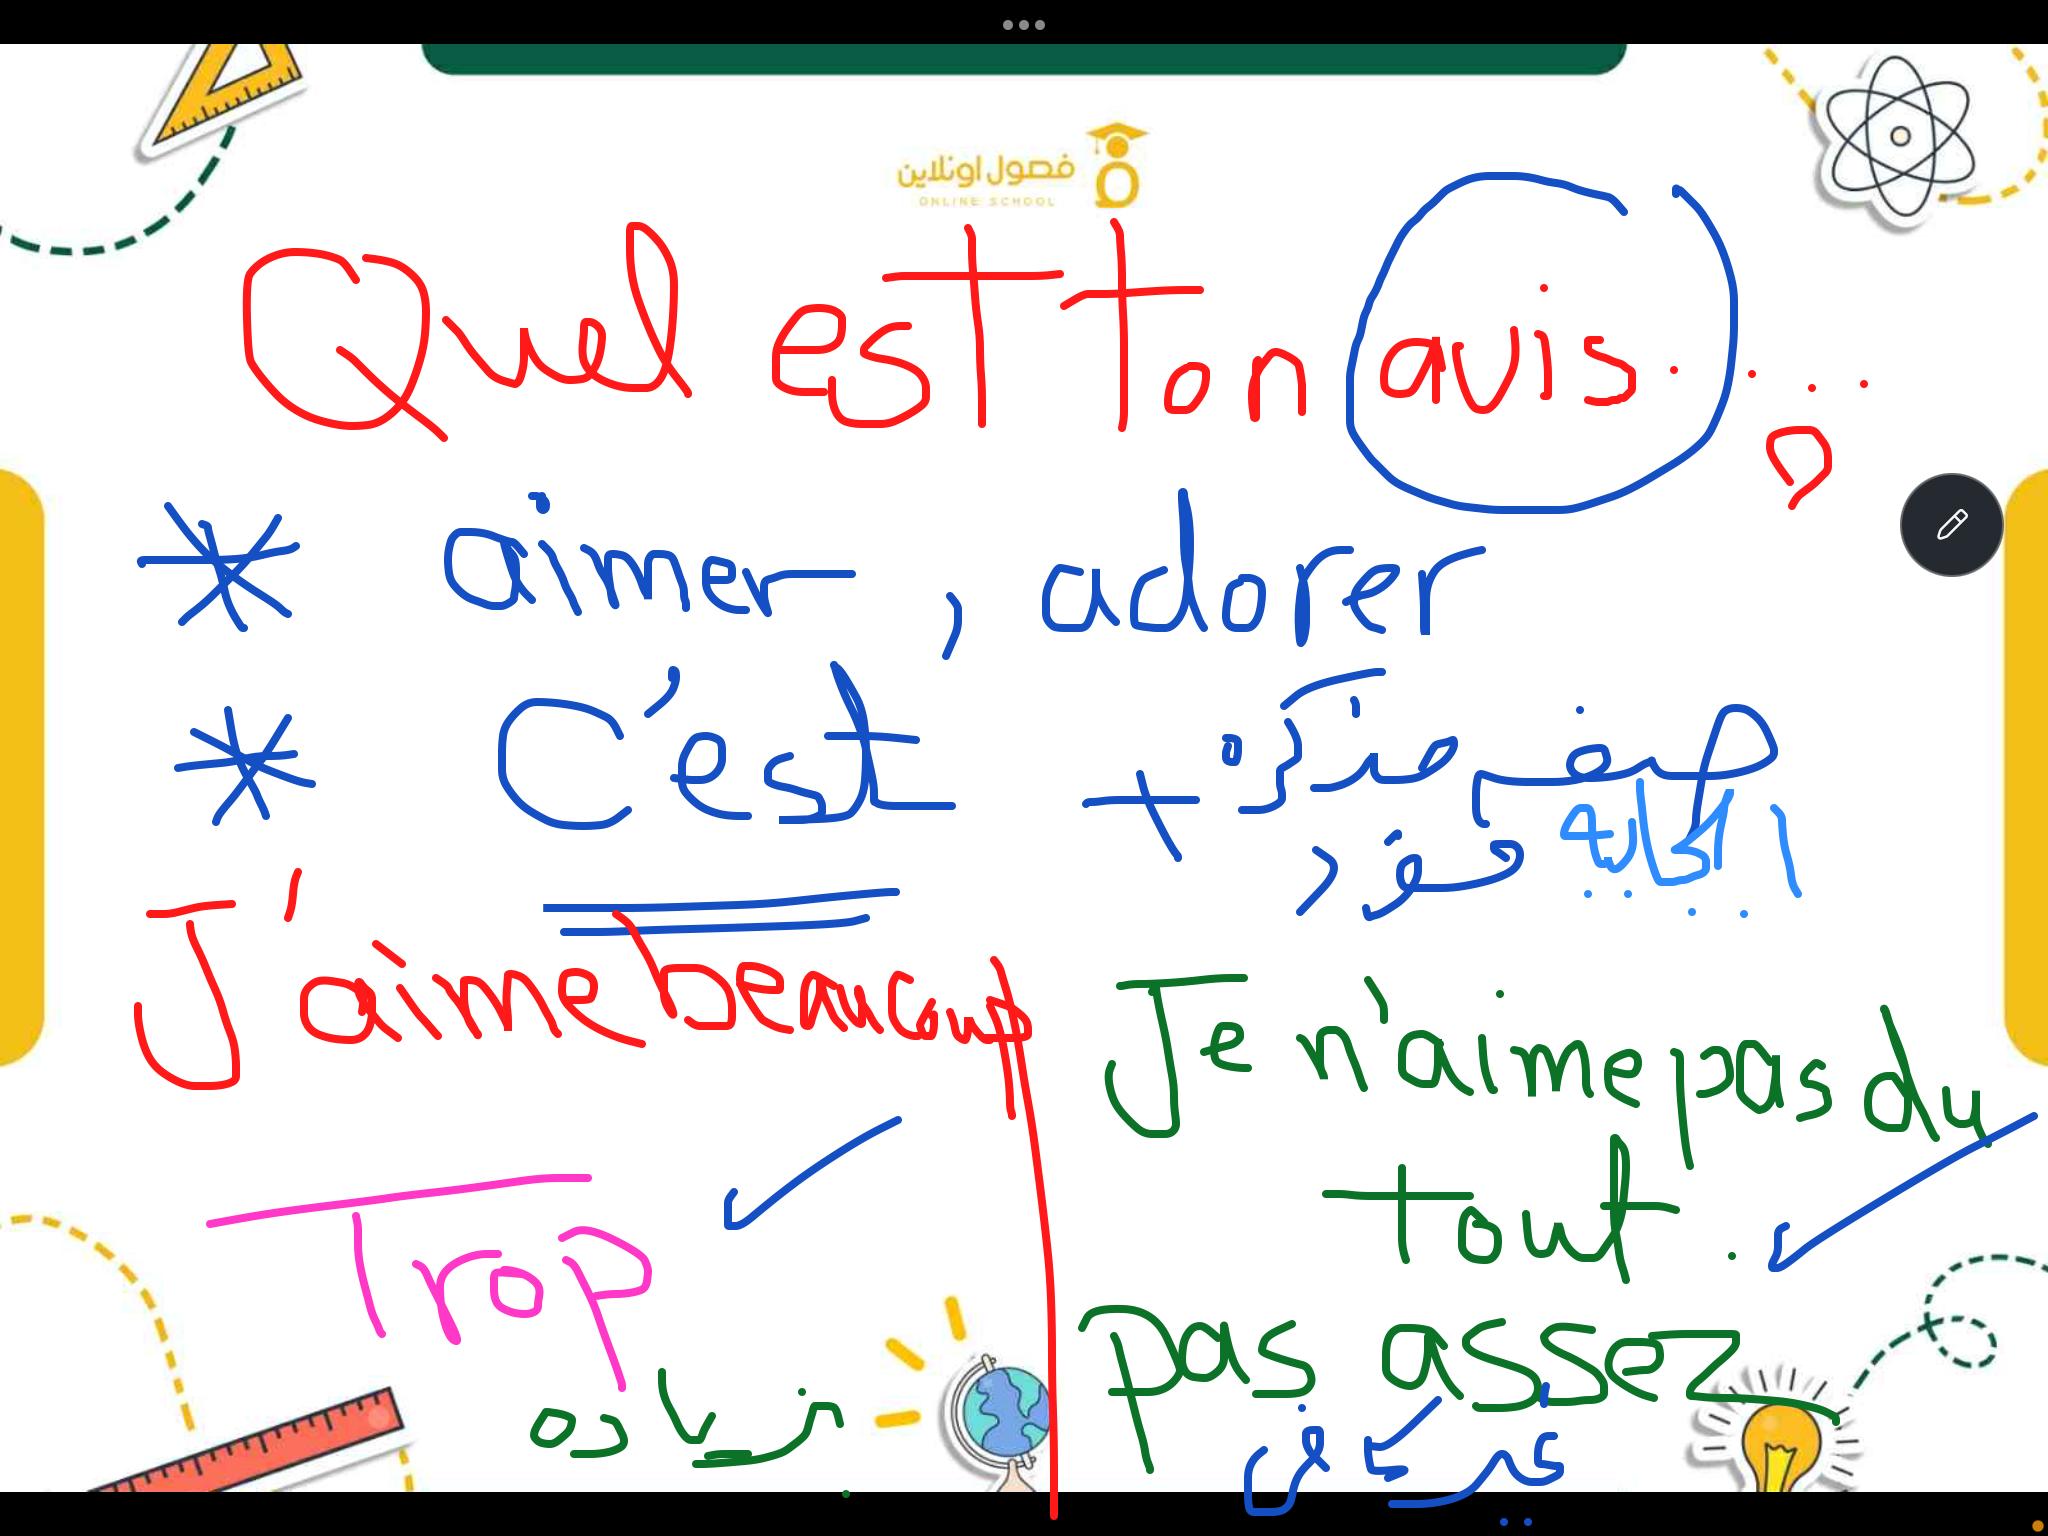 فصول اونلاين
ONLINE SCHOOL
Quel est ton avis....?
* aimer, adorer
* C'est + صفة مذكرة
مفرد
J'aime beaucoup
Je n'aime pas du
tout.
Trop
pas assez